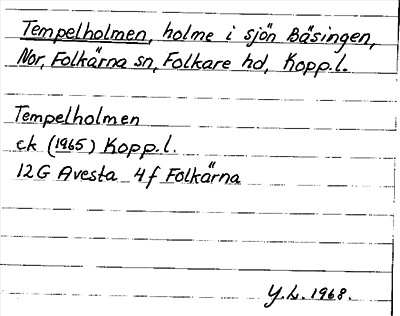 Tempelholmen, holme i sjön Bäsingen,
Nor, Folkärna sn, Folkare hd, Kopp.l.
Tempelholmen
ek (1965) Kopp.l.
12G Avesta 4f Folkärna
Y.L. 1968.